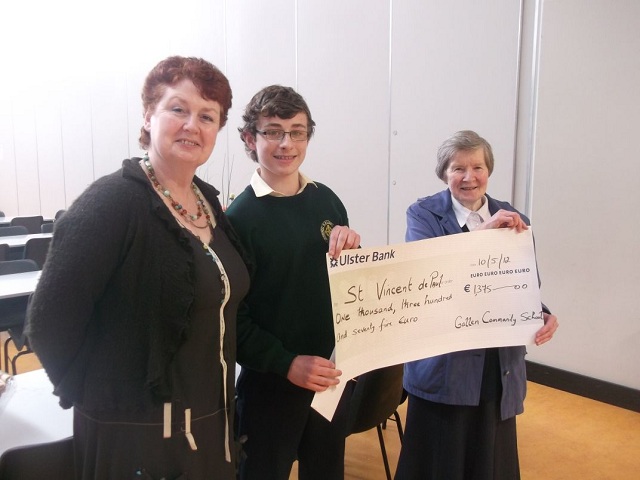 Ulster Bank
10/5/12
EURO EURO EURO EURO
St Vincent de Paul
€ 1375 — 00
One thousand, three hundred
and seventy five Euro
Gallen Community School